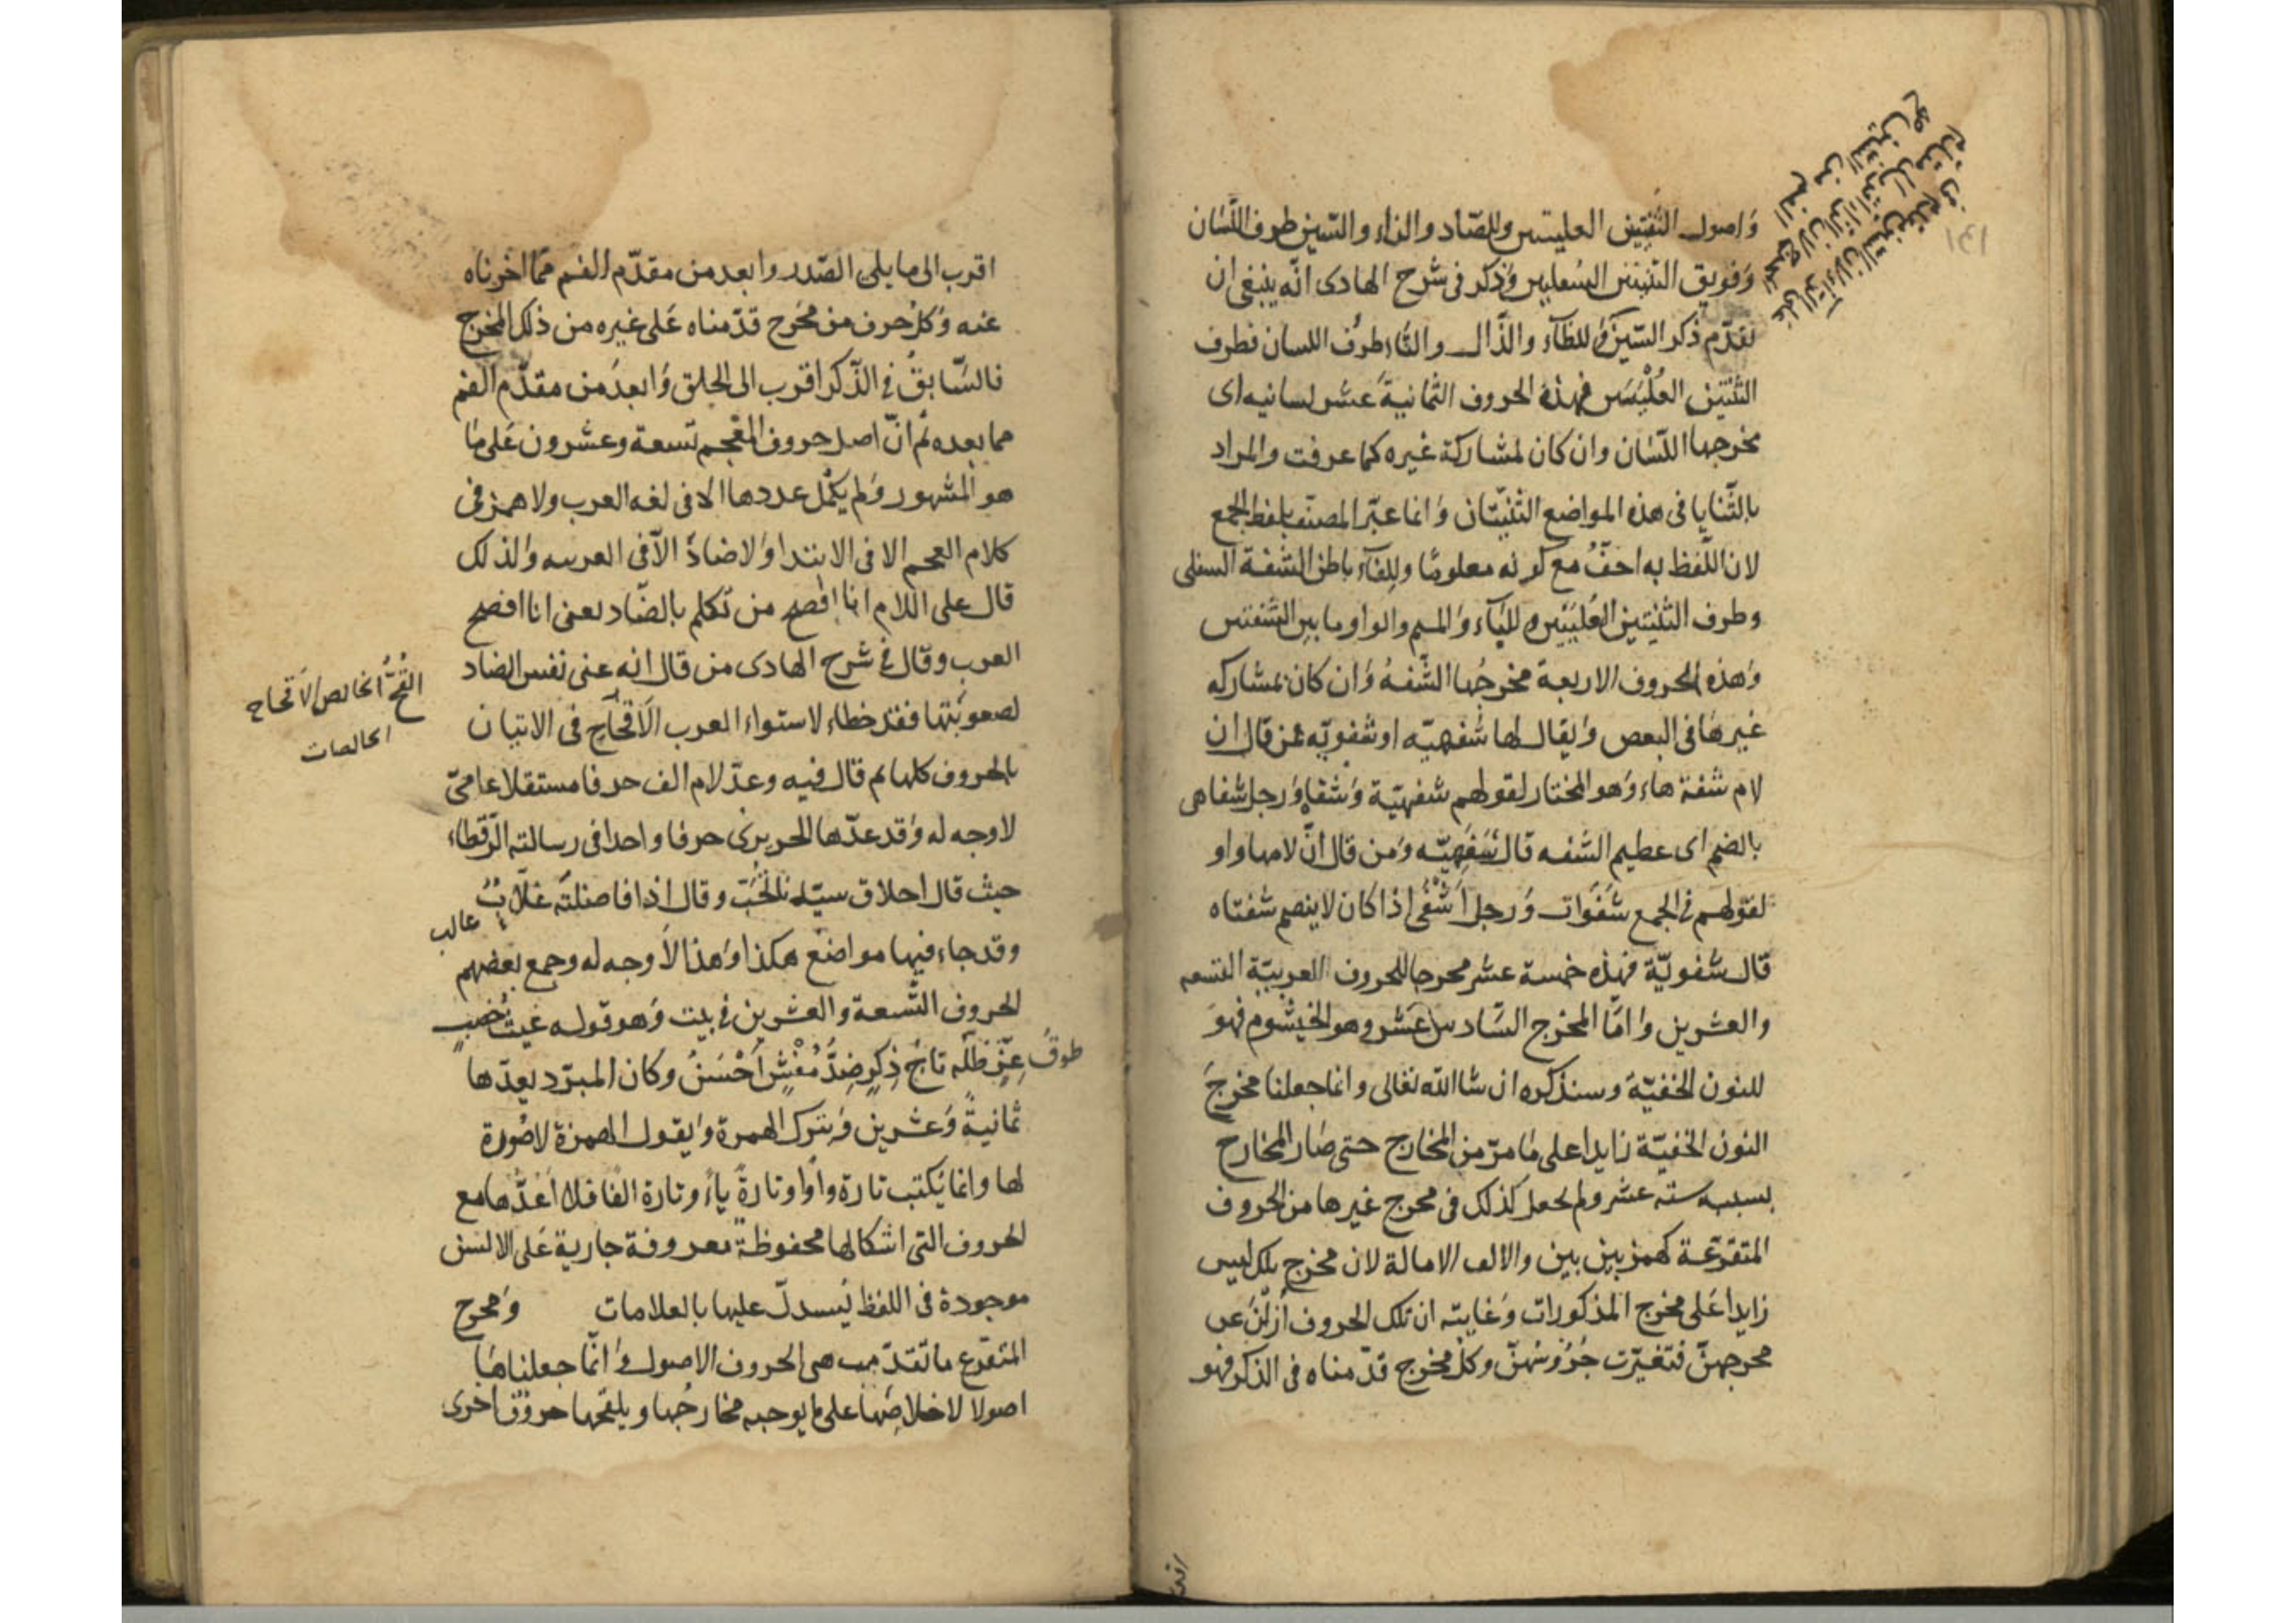 واصول الثنيتين العليتين وللصّاد والزاء والسّين طرف اللّسان
وفويق الثنيتين السفليين وذكر فى شرح الهادى انّه ينبغى ان
تقدّم ذكر السّين وللظاء والذّال والثاء طرف اللسان فطرف
الثنيتين العُلْيَيَين فهذه الحروف الثمانيةَ عشر لسانيه اى
مخرجها اللّسان وان كان لمشاركة غيره كما عرفت والمراد
بالثّنايا فى هذه المواضع الثنيّتان وانما عبّر المصنّف بلفظ الجمع
لان اللّفظ به اخفّ مع كونه معلومًا وللفاء باطن الشفة السفلى
وطرف الثنيتين العُليَيَين وللباء والميم والواو ما بين الشفتين
وهذه الحروف الاربعة مخرجُها الشّفهُ وان كان بمشاركه
غيرها فى البعض ويقال لها شفهيّه او شفويّه فمن قال ان
لام شفة هاء وهو المختار لقولهم شفهيّة وشفاه ورجل شفاهى
بالضم اى عظيم الشفه قال شَفَهِيّه ومن قال انّ لامها واو
لقولهم فى الجمع شَفَوات ورجل اَشْفَى اذا كان لا ينضم شفتاه
قال شفويّة فهذه خمسة عشر مخرجا للحروف العربيّة التسعه
والعشرين وامّا المخرج السّادس عشر وهو الخيشوم فهو
للنون الخفيّة وسنذكره ان شا الله تعالى وانما جعلنا مخرجَ
النون الخفيّة زايدا على ما مرّ من المخارج حتى صار المخارج
بسببه سته عشر ولم نجعل كذلك فى مخرج غيرها من الحروف
المتفرّعة كهمز بين بين والالف الامالة لان مخرج تلك ليس
زايدا على مخرج المذكورات وغايته ان تلك الحروف اُزِلْنَ عن
مخرجهنّ فتغيّرت جُرُوسُهنّ وكل مخرج قدّمناه فى الذكر فهو
اقرب الى ما يلى الصّدر وابعد من مقدّم الفم ممّا اخّرناه
عنه وكل حرف من مخرج قدّمناه على غيره من ذلك المخرج
فالسّابقُ فى الذّكر اقرب الى الحلق وابعدُ من مقدّم الفم
مما بعده ثم انّ اصل حروف المعجم تسعة وعشرون على ما
هو المشهور ولم يكمُل عددها الا فى لغه العرب ولا همز فى
كلام العجم الا فى الابتدا ولا ضادَ الاّ فى العربيه ولذلك
قال على اللام انا افصح من تكلم بالضّاد يعنى انا افصح
العرب وقال فى شرح الهادى من قال انه عنى نفس الضاد
لصعوبتها فقد خطاء لاستواء العرب الاَقحاح فى الاتيان
بالحروف كلها ثم قال فيه وعدّ لام الف حرفا مستقلا عامىّ
لا وجه له وقد عدّها الحريرى حرفا واحدا فى رسالته الرّقطاء
حيث قال اخلاق سيّده تُحَبّ وقال اذا فاضلته غلّابٌ
غالب
وقد جاء فيها مواضع هكذا وهذا لا وجه له وجمع بعضهم
الحروف التّسعة والعشرين فى بيت وهو قوله غيث خصب
طوقُ عِزّ ظلّه تاجُ ذِكرٍ ضِدُّ مُفْشٍ اَحْسَنُ وكان المبرّد يعدّها
ثمانيةً وعشرين ويترك الهمزة ويقول الهمزة لا صورة
لها وانما يُكتب تارة واوا وتارةً ياءً وتارة الفا فلا اَعُدُّها مع
الحروف التى اشكالها محفوظة معروفة جارية على الالسن
موجودة فى اللفظ يُستدلّ عليها بالعلامات ومخرج
المتفرّع ما تقدّمت هى الحروف الاصول وانّما جعلناها
اصولا لاخلاصِها على ما يوجبه مخارجُها ويلحقها حروفٌ اخرى
القُحُّ الخالص الاَقحاح
الخالصات